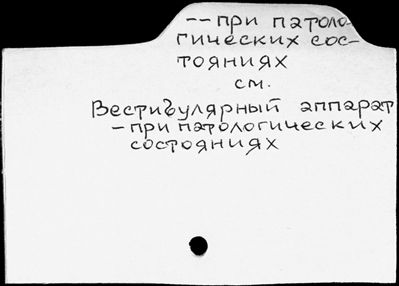 -- при патоло-
гических сос-
тояниях
см.
Вестибулярный аппарат
- при патологических
состояниях